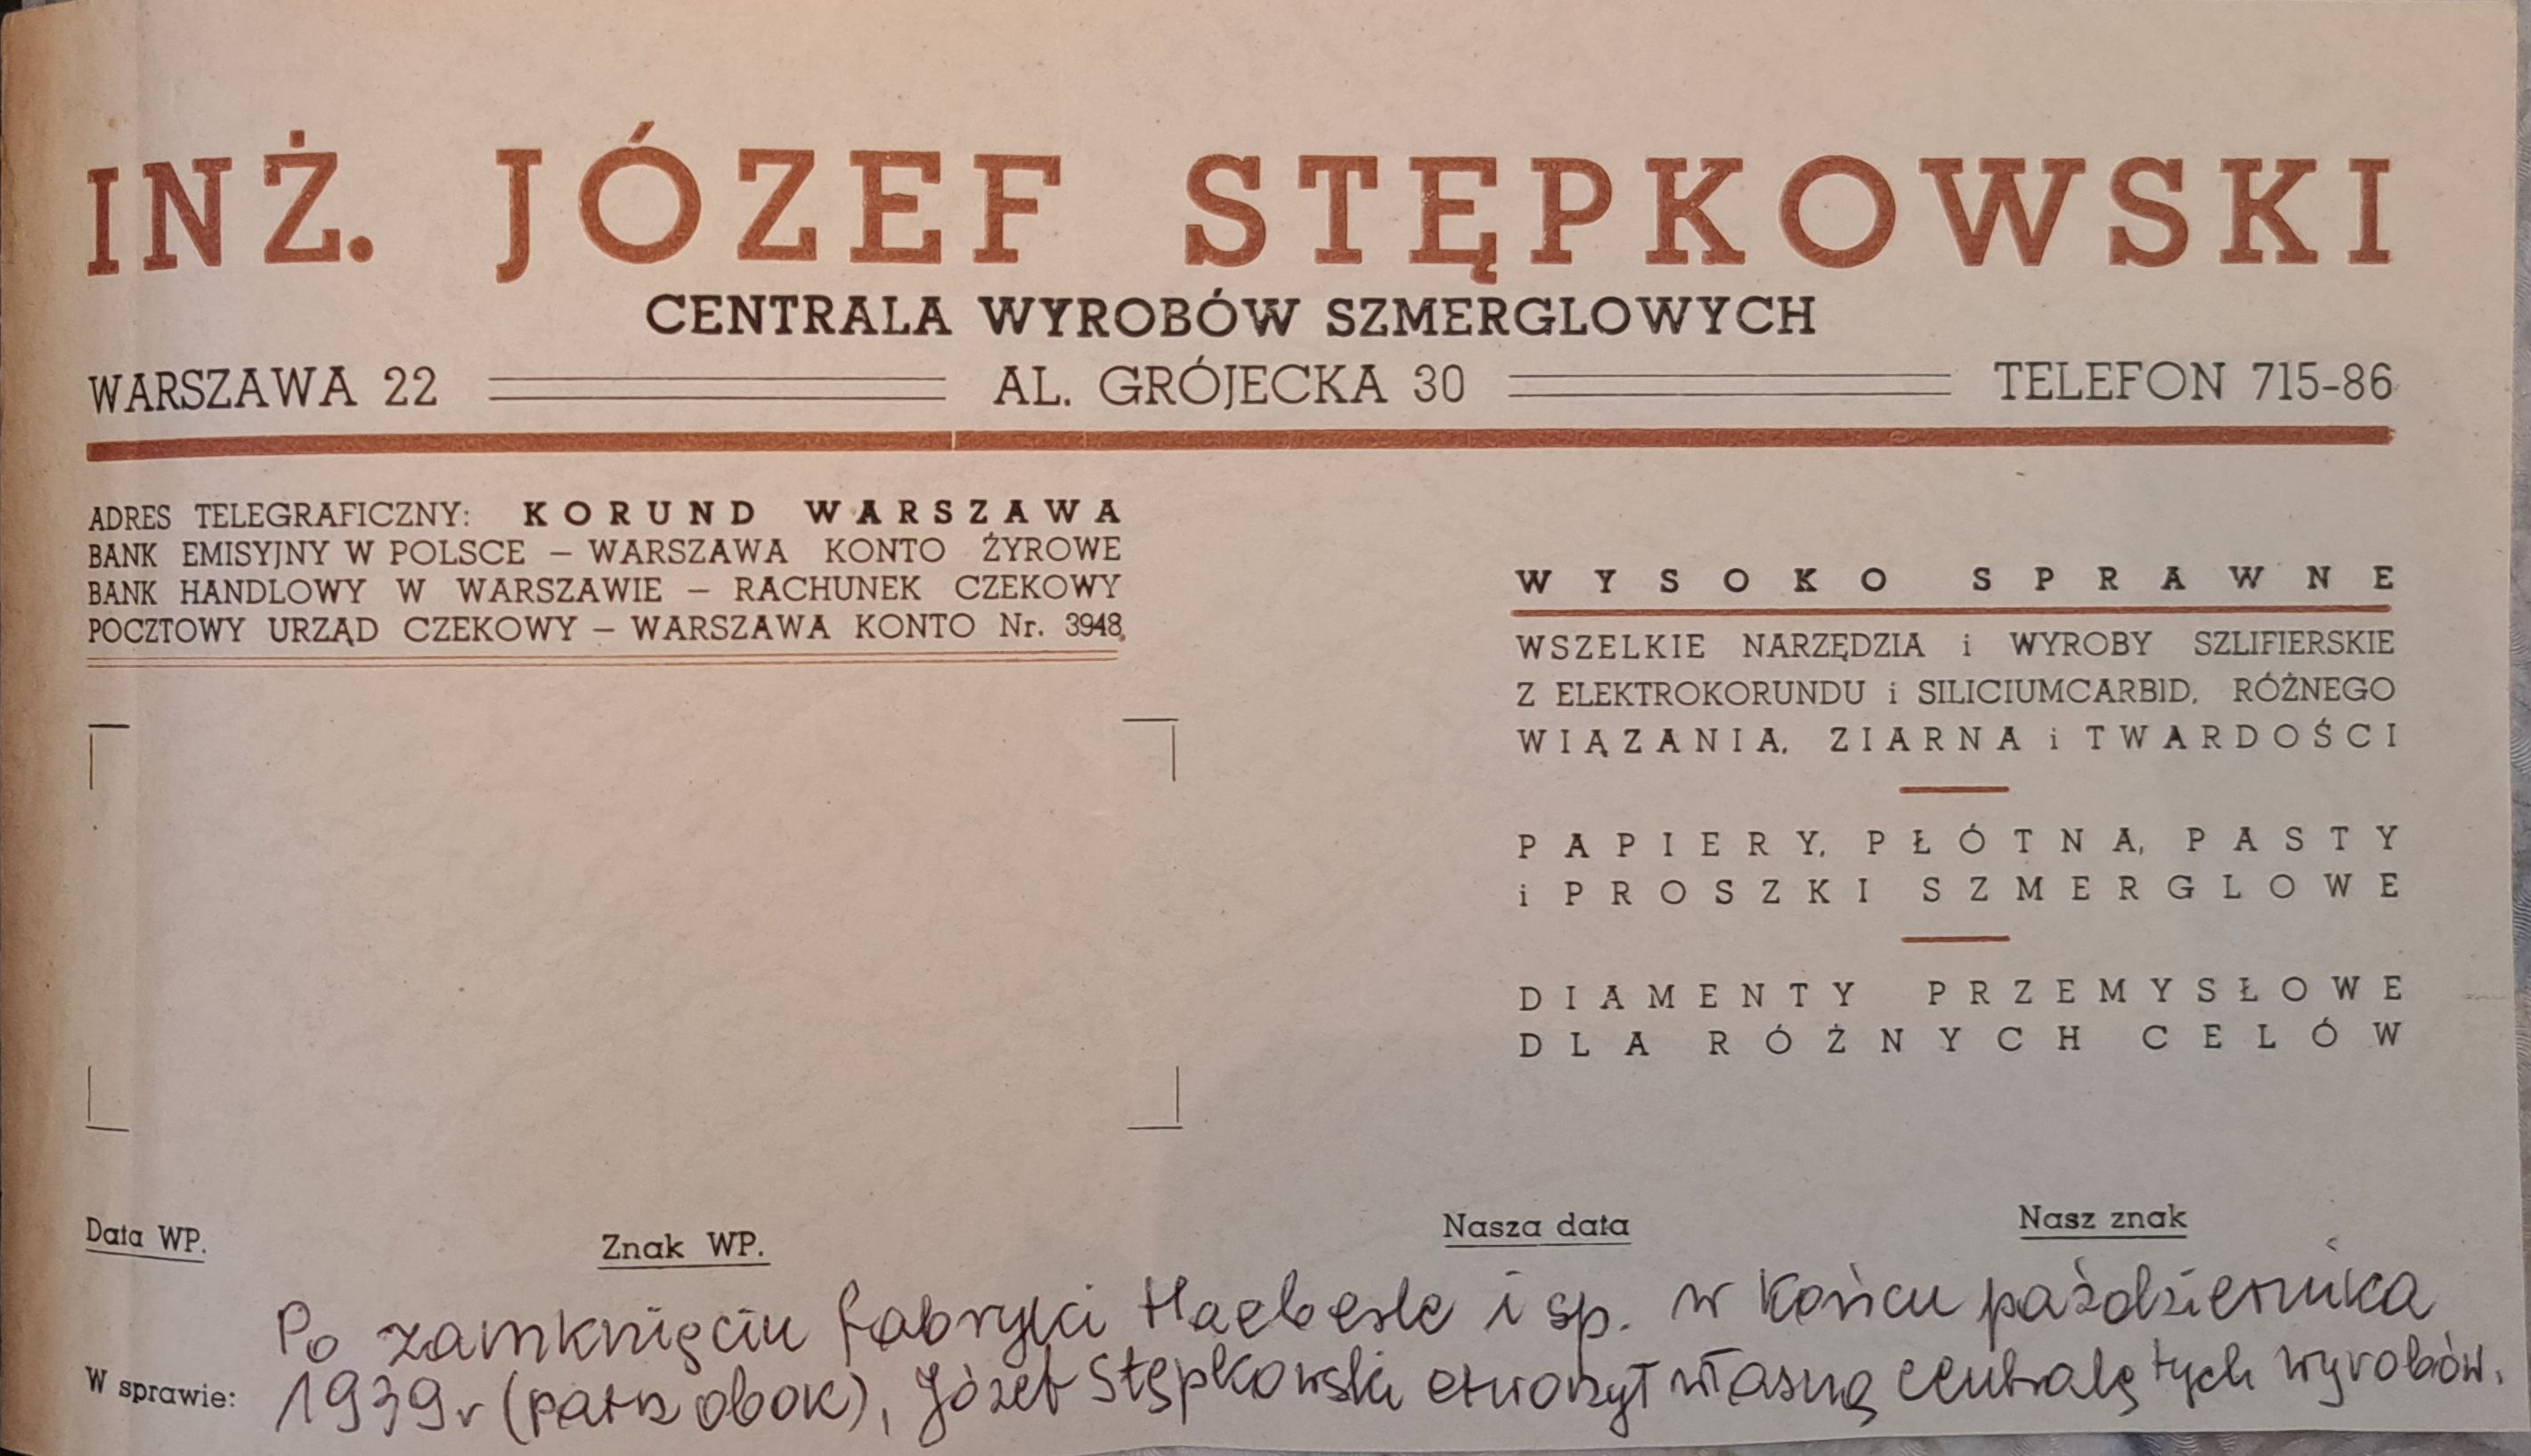 INŻ. JÓZEF STĘPKOWSKI
CENTRALA WYROBÓW SZMERGLOWYCH
WARSZAWA 22 AL. GRÓJECKA 30 TELEFON 715-86
ADRES TELEGRAFICZNY: KORUND WARSZAWA
BANK EMISYJNY W POLSCE – WARSZAWA KONTO ŻYROWE
BANK HANDLOWY W WARSZAWIE – RACHUNEK CZEKOWY
POCZTOWY URZĄD CZEKOWY – WARSZAWA KONTO Nr. 3948
WYSOKO SPRAWNE
WSZELKIE NARZĘDZIA i WYROBY SZLIFIERSKIE
Z ELEKTROKORUNDU i SILICIUMCARBID, RÓŻNEGO
WIĄZANIA, ZIARNA i TWARDOŚCI
PAPIERY, PŁÓTNA, PASTY
i PROSZKI SZMERGLOWE
DIAMENTY PRZEMYSŁOWE
DLA RÓŻNYCH CELÓW
Data WP. Znak WP. Nasza data Nasz znak
Po zamknięciu fabryki Haeberle i sp. w końcu października
W sprawie: 1939r (patrz obok), Józef Stępkowski otworzył własną centralę tych wyrobów.